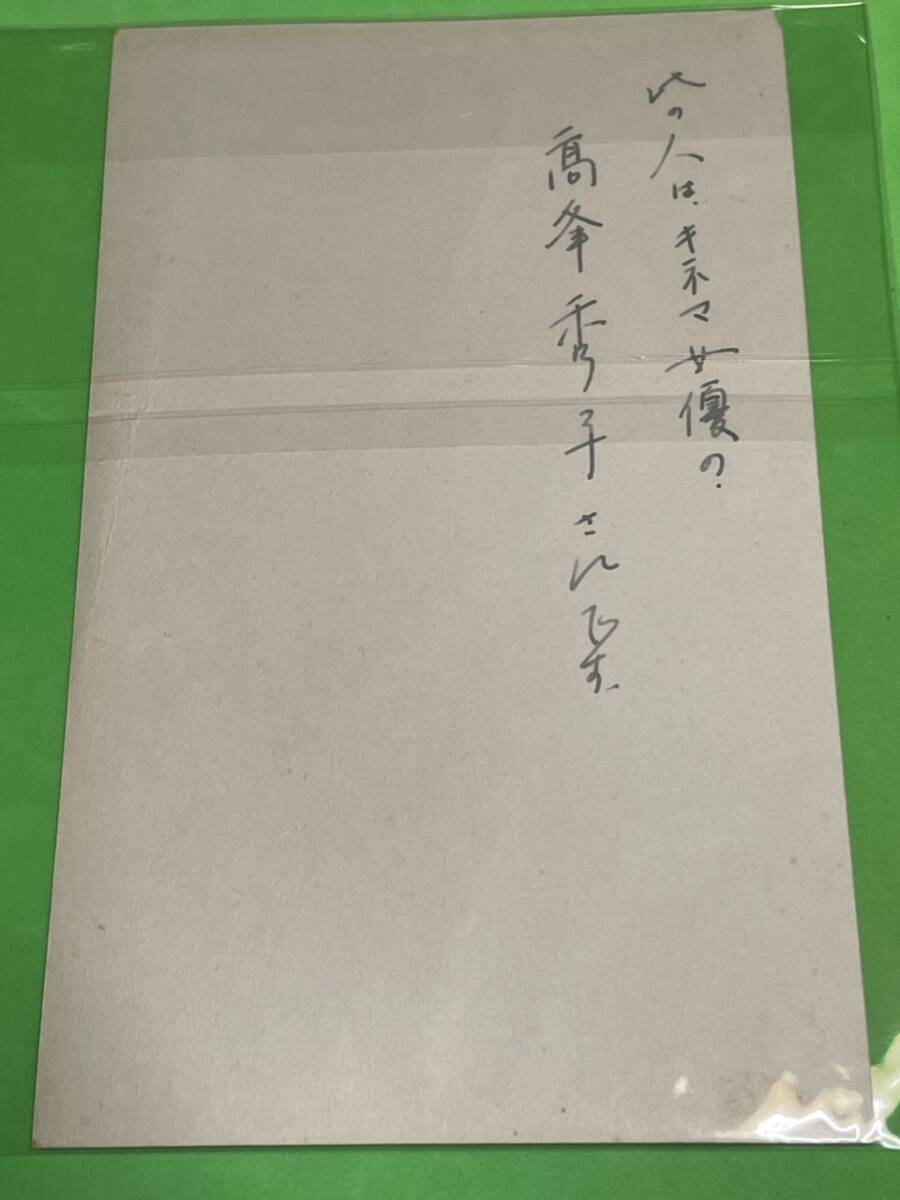 此の人は、キネマ女優の、
高峯秀子さんです、